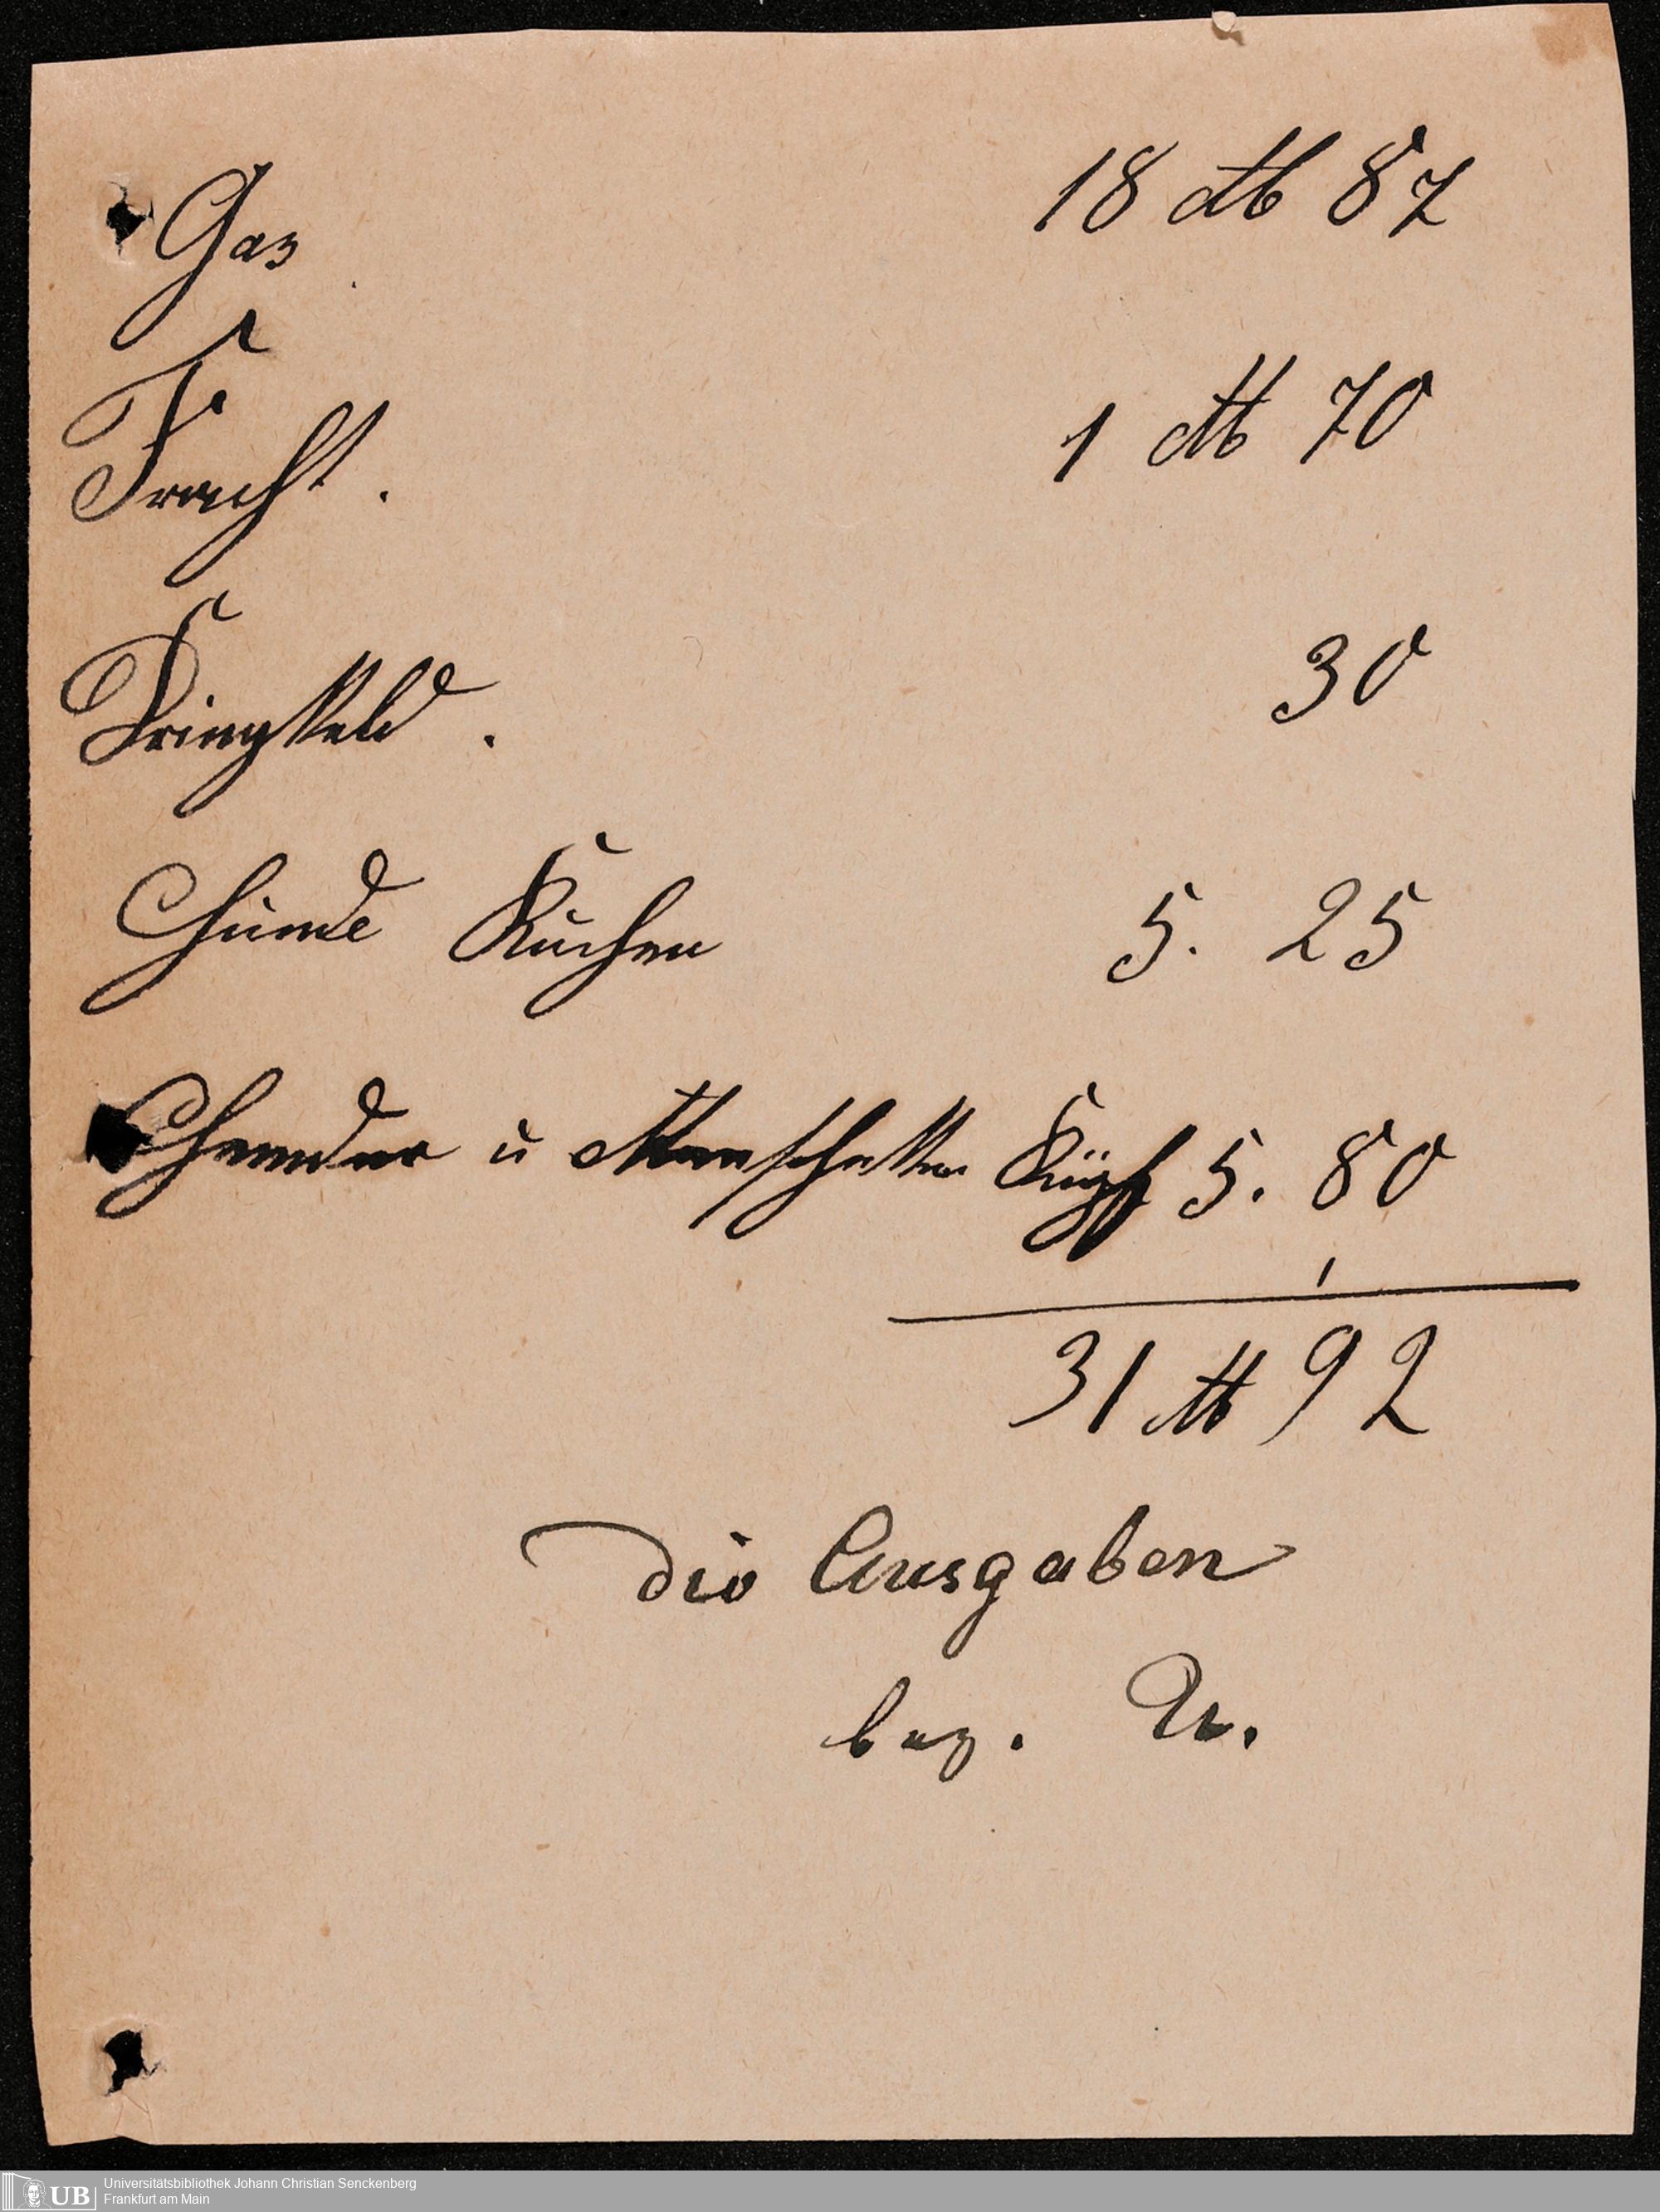 Gas 18 M 87
Fracht. 1 M 70
Tringkeld. 30
Hunde Kuchen 5. 25
Hemder u Manschetten Küpf 5. 80
31 M 92
die Ausgaben
bez. A.
UB Universitätsbibliothek Johann Christian Senckenberg
Frankfurt am Main